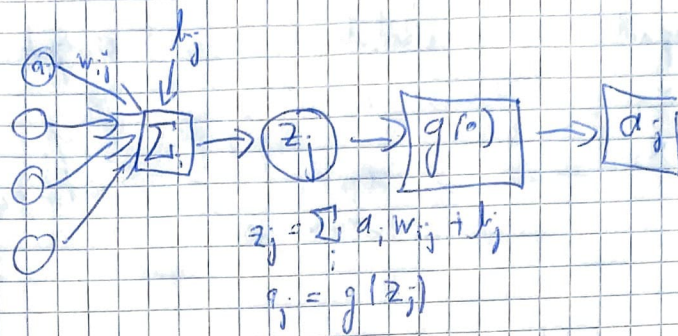 b_j
a_i w_ij
Σ_i z_j g(•) a_j
z_j = Σ_i a_i w_ij + b_j
a_j = g(z_j)